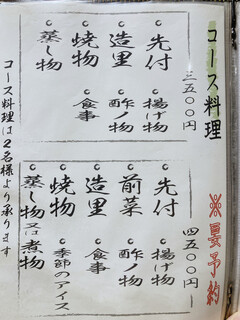 コース料理 ※要予約
三五〇〇円
先付
造里
焼物
蒸し物
揚げ物
酢ノ物
食事
四五〇〇円
先付
前菜
造里
焼物
蒸し物又は煮物
揚げ物
酢ノ物
食事
季節のアイス
コース料理は2名様より承ります